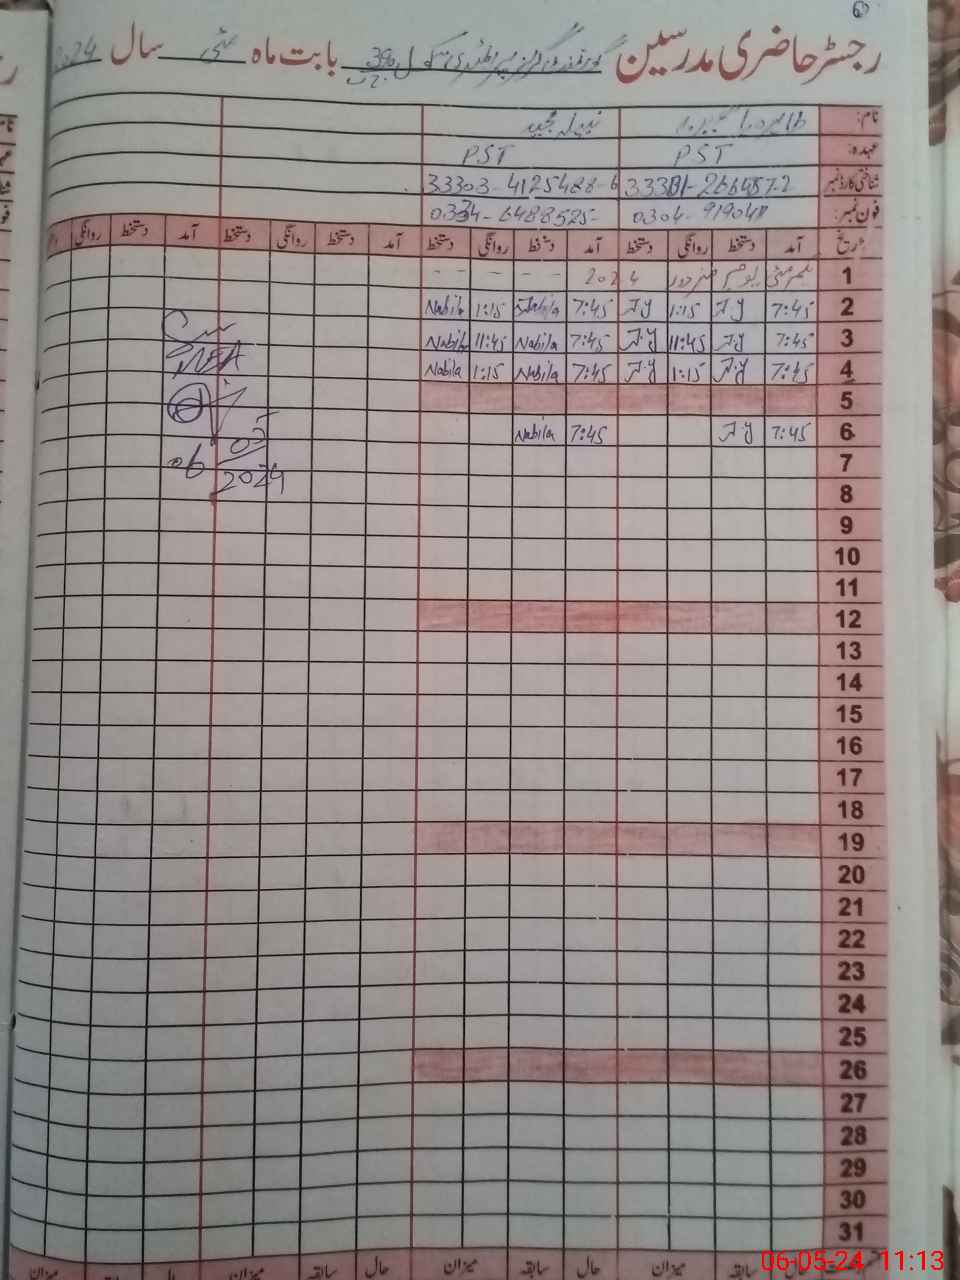 رجسٹر حاضری مدرسین گورنمنٹ گرلز پرائمری سکول 396 ج ب بابت ماہ مئی سال 2024
نام: طاہرہ نبیلہ مجید
عہدہ: PST PST
شناختی کارڈ نمبر 33303-4125428-6
فون نمبر: 0304- 0334-6488525
تاریخ آمد دستخط روانگی دستخط آمد دستخط روانگی دستخط آمد دستخط روانگی دستخط آمد دستخط روانگی
1 یکم مئی یوم مزدور 2024 - - - -
2 7:45 1:15 7:45 Nabila 1:15 Nabila
3 7:45 11:45 7:45 Nabila 11:45 Nabila
4 7:45 1:15 7:45 Nabila 1:15 Nabila
5
6 7:45 7:45 Nabila
7
8
9
10
11
12
13
14
15
16
17
18
19
20
21
22
23
24
25
26
27
28
29
30
31
میزان سابقہ حال میزان سابقہ حال میزان سابقہ حال میزان
06 05
2024
06-05-24 11:13